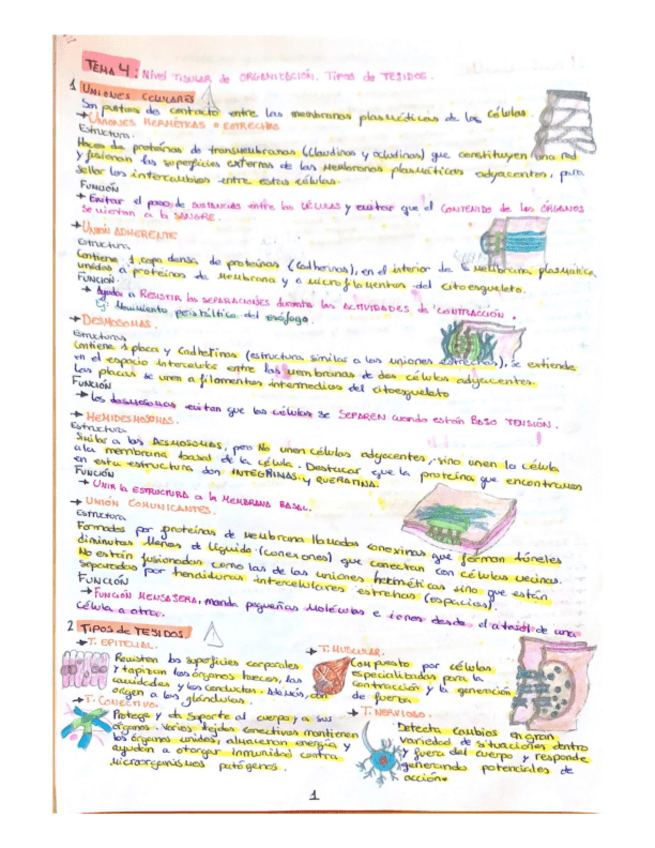 TEMA 4: Nivel TISULAR de ORGANIZACIÓN. Tipos de TEJIDOS.
1 UNIONES CELULARES
Son puntos de contacto entre las membranas plasmáticas de las células.
→ UNIONES HERMÉTICAS o ESTRECHAS
Estructura.
Hecho de proteínas de transmembranas (claudinas y ocludinas) que constituyen una red
y fusionan las superficies externas de las membranas plasmáticas adyacentes, para
sellar los intercambios entre estas células.
FUNCIÓN
→ Evitar el paso de SUSTANCIAS entre las CÉLULAS y evitar que el CONTENIDO de los ÓRGANOS
se viertan a la SANGRE.
→ UNIÓN ADHERENTE
Estructura
Contiene 1 capa densa de proteínas (cadherinas), en el interior de la membrana plasmática
unidos a proteínas de membrana y a microfilamentos del citoesqueleto.
FUNCIÓN.
→ Ayudar a RESISTIR las SEPARACIONES durante las ACTIVIDADES de CONTRACCIÓN.
Ej: Movimiento peristáltico del esófago.
→ DESMOSOMAS.
Estructuras
Contiene 1 placa y cadherinas (estructura similar a las uniones estrechas), se extiende
en el espacio intercelular entre las membranas de dos células adyacentes.
Las placas se unen a filamentos intermedios del citoesqueleto
FUNCIÓN
→ Los desmosomas evitan que las células se SEPAREN cuando están BAJO TENSIÓN.
→ HEMIDESMOSOMAS.
Estructura
Similar a los DESMOSOMAS, pero No unen células adyacentes, sino unen la célula
a la membrana basal de la célula. Destacar que la proteína que encontramos
en esta estructura son INTEGRINAS y QUERATINA.
FUNCIÓN
→ UNIR la ESTRUCTURA a la MEMBRANA BASAL.
→ UNIÓN COMUNICANTES.
Estructura
Formados por proteínas de membrana llamadas conexinas que forman túneles
diminutos llenos de líquido (conexones) que conectan con células vecinas.
No están fusionadas como las de las uniones herméticas sino que están
separadas por hendiduras intercelulares estrechas (espacios).
FUNCIÓN
→ FUNCIÓN MENSAJERA, manda pequeñas moléculas e iones desde el citosol de una
célula a otra.
2 TIPOS de TEJIDOS
→ T. EPITELIAL.
Revisten las superficies corporales
y tapizan los órganos huecos, las
cavidades y los conductos. Además, dan
origen a las glándulas.
→ T. CONECTIVO.
Protege y da soporte al cuerpo y a sus
órganos. Varios tejidos conectivos mantienen
los órganos unidos, almacenan energía y
ayudan a otorgar inmunidad contra
microorganismos patógenos.
→ T. MUSCULAR.
Compuesto por células
especializadas para la
contracción y la generación
de fuerza.
→ T. NERVIOSO.
Detecta cambios en gran
variedad de situaciones dentro
y fuera del cuerpo y responde
generando potenciales de
acción.
1